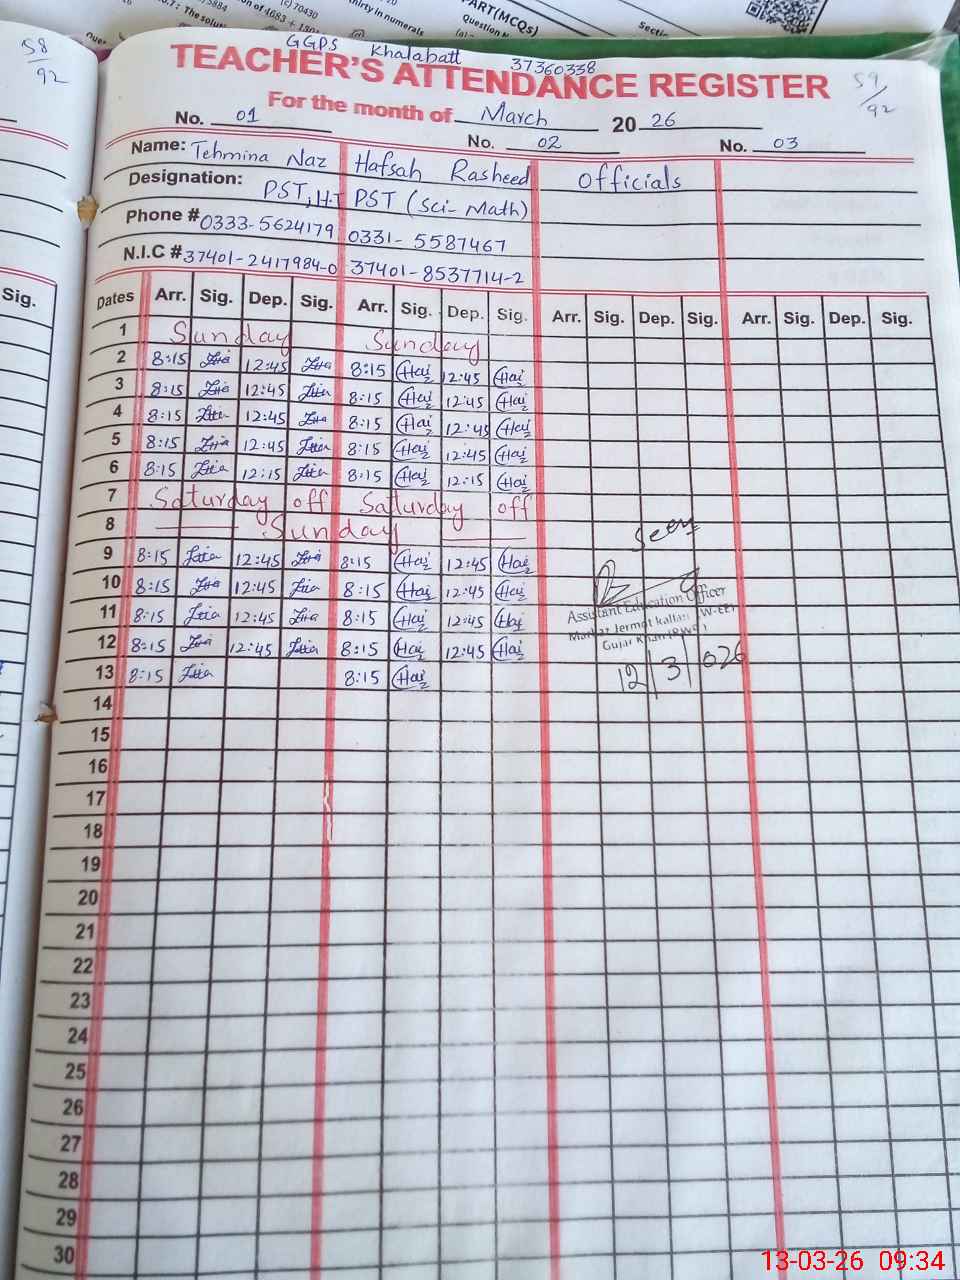 58
92
GGPS Khalabatt 37360338
TEACHER'S ATTENDANCE REGISTER
59
92
For the month of March 20 26
No. 01 No. 02 No. 03
Name: Tehmina Naz Hafsah Rasheed Officials
Designation: PST, H.T PST (Sci-Math)
Phone # 0333-5624179 0331-5587467
N.I.C # 37401-2417984-0 37401-8537714-2
Sig.
Dates Arr. Sig. Dep. Sig. Arr. Sig. Dep. Sig. Arr. Sig. Dep. Sig. Arr. Sig. Dep. Sig.
1 Sunday Sunday
2 8:15 12:45 8:15 12:45
3 8:15 12:45 8:15 12:45
4 8:15 12:45 8:15 12:45
5 8:15 12:45 8:15 12:45
6 8:15 12:15 8:15 12:15
7 Saturday off Saturday off
8 Sunday
9 8:15 12:45 8:15 12:45
10 8:15 12:45 8:15 12:45
11 8:15 12:45 8:15 12:45
12 8:15 12:45 8:15 12:45
13 8:15 8:15
Seen
Assistant Education Officer
Markaz Jermot kallan (W-EE)
Gujar Khan (RWP)
12/3/026
14
15
16
17
18
19
20
21
22
23
24
25
26
27
28
29
30
13-03-26 09:34